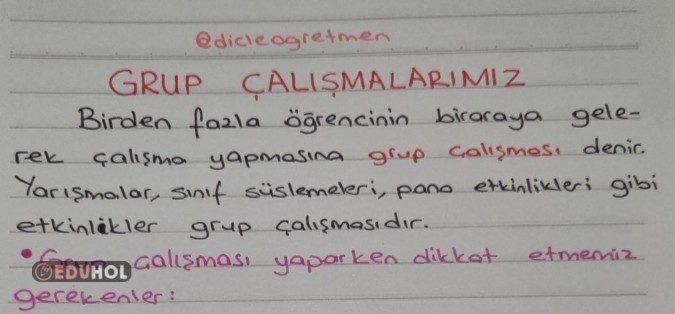 @dicleogretmen
GRUP ÇALIŞMALARIMIZ
Birden fazla öğrencinin biraraya gele-
rek çalışma yapmasına grup çalışması denir.
Yarışmalar, sınıf süslemeleri, pano etkinlikleri gibi
etkinlikler grup çalışmasıdır.
• çalışması yaparken dikkat etmemiz
EDUHOL
gerekenler: